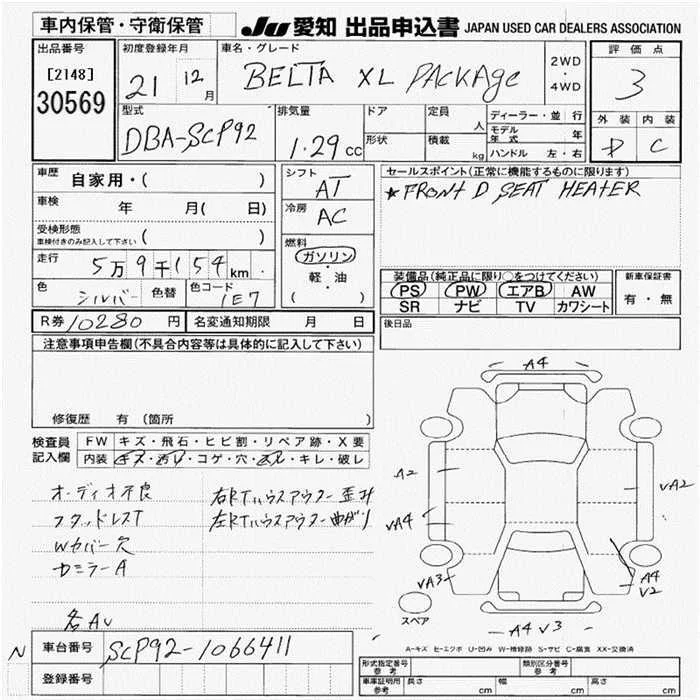 車内保管・守衛保管 JU 愛知 出品申込書 JAPAN USED CAR DEALERS ASSOCIATION
出品番号 初度登録年月 車名・グレード 2WD・4WD 評価点
[2148] 30569 21 12月 BELTA XL PACKAGE 3
型式 排気量 ドア 定員 人 ディーラー・並 行 外装 内装
DBA-SCP92 1.29cc 形状 積載 kg モデル年式 年 D C
ハンドル 左・右
車歴 自家用・( ) シフト AT セールスポイント(正常に機能するものに限ります)
★FRONT D SEAT HEATER
車検 年 月( 日) 冷房 AC
受検形態 ( )
車検付きのみ記入して下さい
燃料 ガソリン・軽・油 ( )
走行 5万9千154km
装備品(純正品に限り○をつけてください) 新車保証書
色 シルバー 色替 色コード 1E7
PS PW エアB AW 有・無
SR ナビ TV カワシート
R券 10280円 名変通知期限 月 日 後日品
注意事項申告欄(不具合内容等は具体的に記入して下さい)
修復歴 有 (箇所 )
検査員記入欄 FW キズ・飛石・ヒビ割・リペア跡・X要
内装 キズ・汚レ・コゲ・穴・スレ・キレ・破レ
オーディオ不良 右RTハウスアウター歪み
スタッドレスT 左RTハウスアウター曲がり
Wカバー欠
ミラーA
各AU
A4
A2
VA2
VA4
VA3
A4
V2
スペア
A4 V3
A-キズ E-エクボ U-凹み W-補修跡 S-サビ C-腐食 XX-交換済
N 車台番号 SCP92-1066411
登録番号
形式指定番号 参考 類別区分番号 参考
車庫証明用 参考 長さ cm 幅 cm 高さ cm